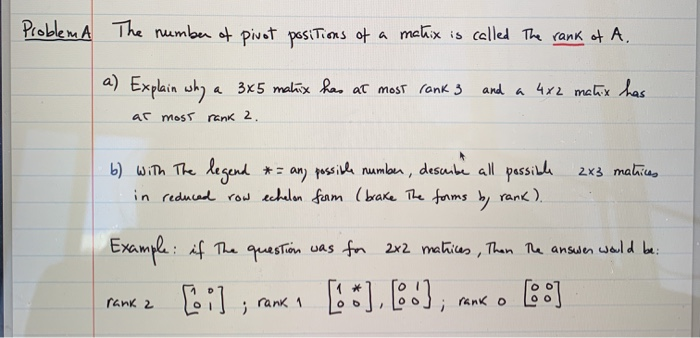 Problem A The number of pivot positions of a matrix is called The rank of A.
a) Explain why a 3x5 matrix has at most rank 3 and a 4x2 matrix has
at most rank 2.
b) With The legend * = any possible number, describe all possible 2x3 matrices
in reduced row echelon form (brake The forms by rank).
Example: if The question was for 2x2 matrices, Then The answer would be:
rank 2 [1 0 0 1] ; rank 1 [1 * 0 0], [0 1 0 0] ; rank 0 [0 0 0 0]